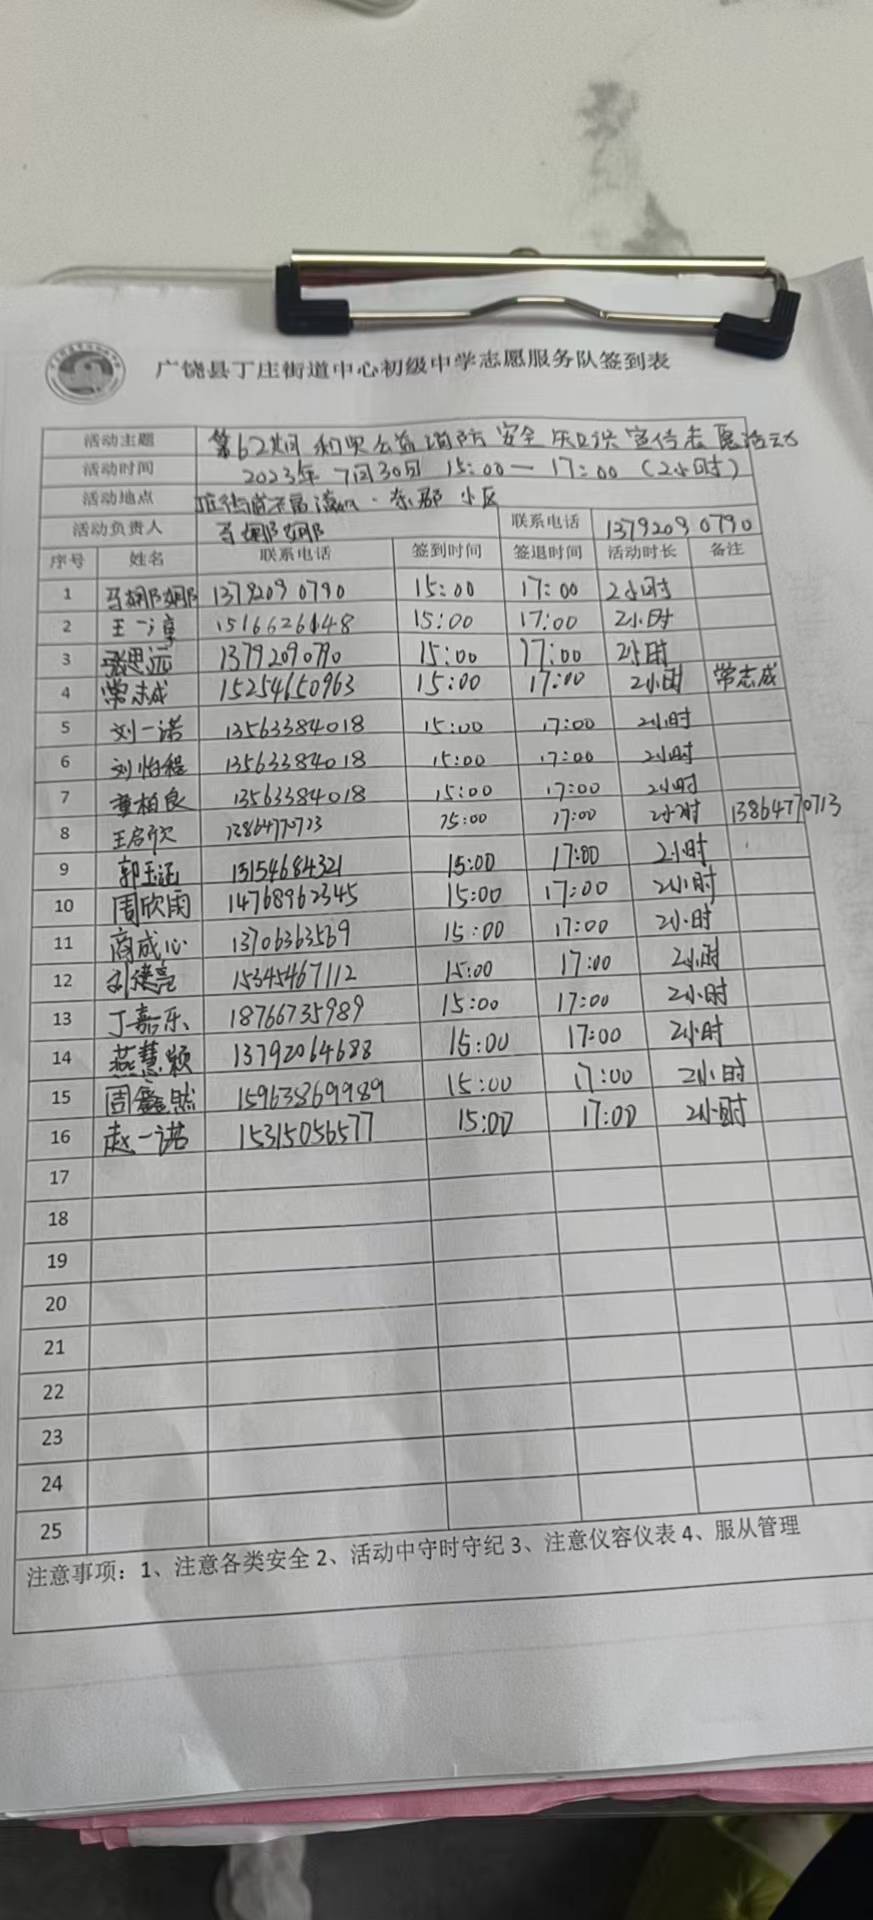 广饶县丁庄街道中心初级中学志愿服务队签到表
活动主题 第62期 公益消防安全知识宣传志愿活动
活动时间 2023年7月30日 15:00—17:00（2小时）
活动地点 东郡小区
活动负责人 马娜娜 联系电话 13792090790
序号 姓名 联系电话 签到时间 签退时间 活动时长 备注
1 马娜娜 13792090790 15:00 17:00 2小时
2 王一淳 1516626148 15:00 17:00 2小时
3 张思远 13792090790 15:00 17:00 2小时
4 常志成 15254650963 15:00 17:00 2小时 常志成
5 刘一诺 13563384018 15:00 17:00 2小时
6 刘怡程 13563384018 15:00 17:00 2小时
7 董柏良 13563384018 15:00 17:00 2小时
8 王启欣 13864770713 15:00 17:00 2小时 13864770713
9 郭玉涵 13154684321 15:00 17:00 2小时
10 周欣雨 14768962345 15:00 17:00 2小时
11 商成心 13706363569 15:00 17:00 2小时
12 刘建亮 15345467112 15:00 17:00 2小时
13 丁嘉乐 18766735989 15:00 17:00 2小时
14 燕慧颖 13792064688 15:00 17:00 2小时
15 周鑫然 159638699989 15:00 17:00 2小时
16 赵一诺 15315056577 15:00 17:00 2小时
17
18
19
20
21
22
23
24
25
注意事项：1、注意各类安全 2、活动中守时守纪 3、注意仪容仪表 4、服从管理